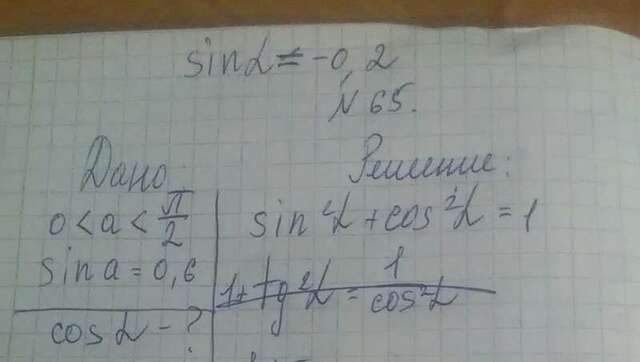 sinα = -0,2
N 65.
Дано
0 < a < π/2
sin a = 0,6
cos α - ?
Решение:
sin²α + cos²α = 1
1 + tg²α = 1/cos²α